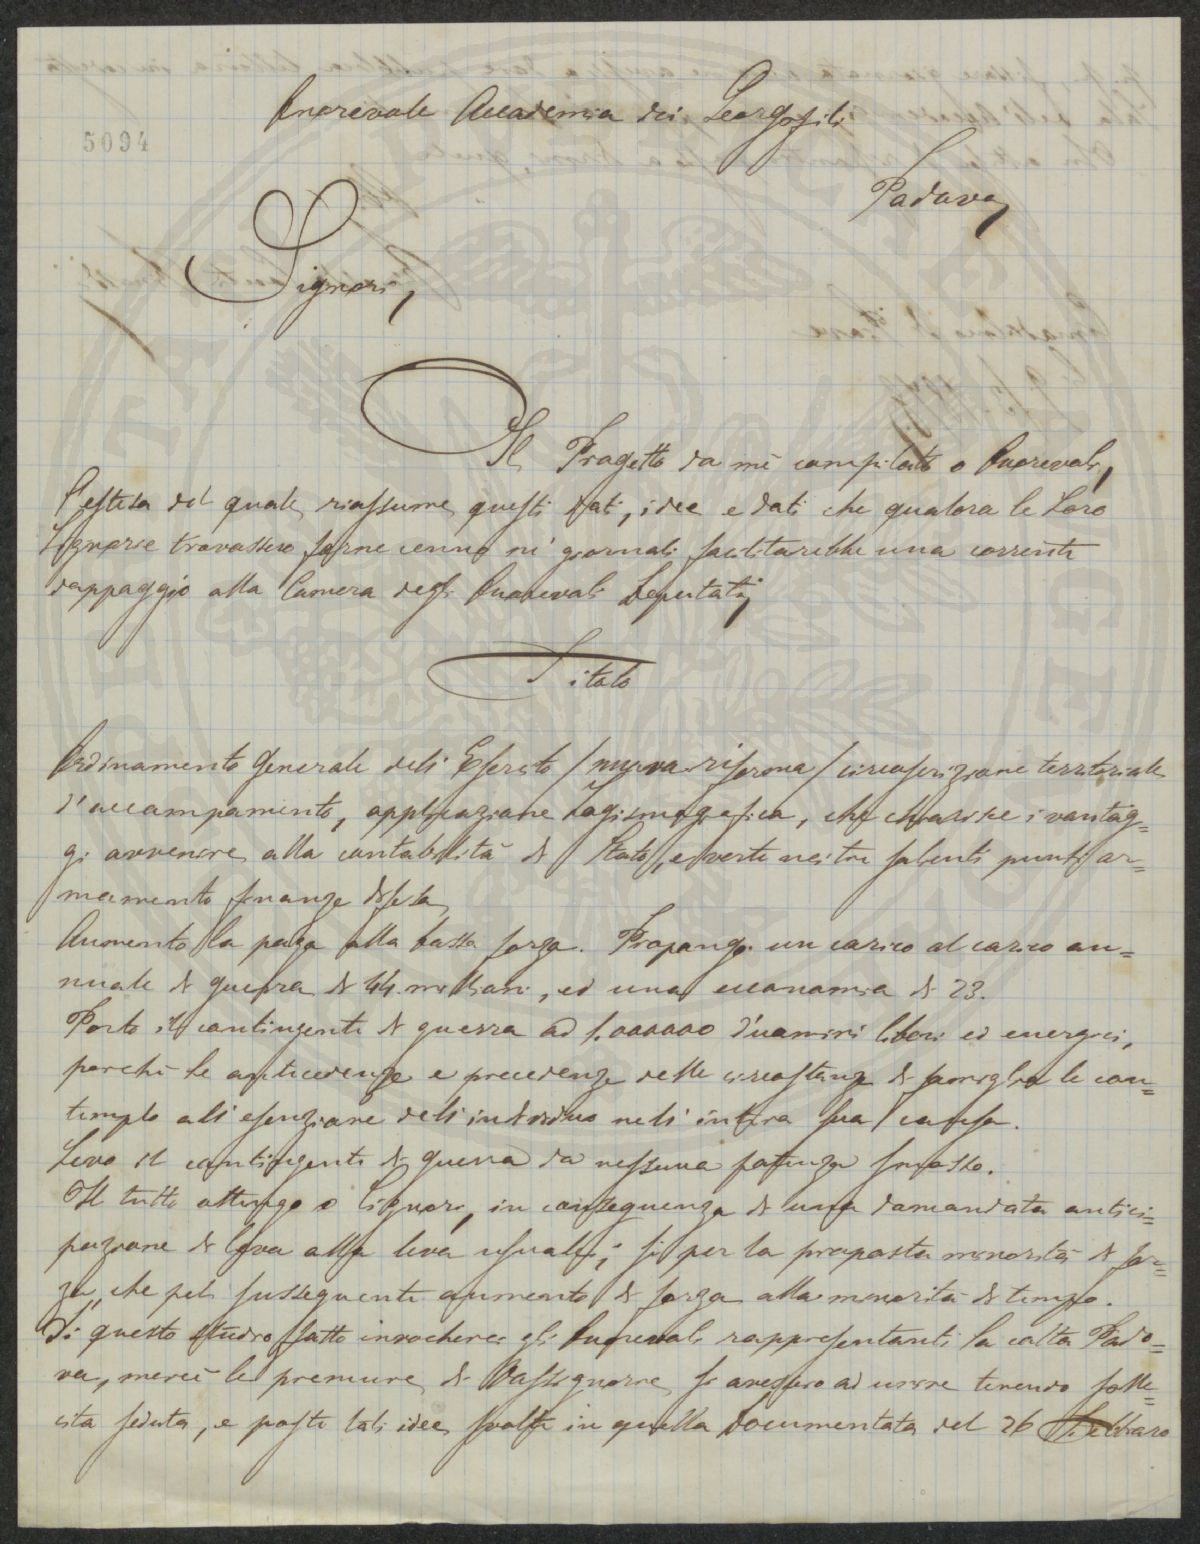 Onorevole Accademia dei Georgofili
5094
Padova,
Signori,
Il Progetto da me compilato o Onorevoli,
l'estesa del quale, riassume, questi stati, idee e dati che qualora le Loro
Signorie trovassero farne cenno ne' giornali faciliterebbe una corrente
d'appoggio alla Camera degli Onorevoli Deputati;
Titolo
Ordinamento Generale dell'Esercito / nuova riforma / circoscrizione territoriale
d'accampamento, applicazione Logismografica, che chiarisce i vantag=
gi avvenire, alla contabilità di Stato, e verte nei tre salienti punti ar=
mamento finanze difesa,
Aumento la paga alla bassa forza. Propongo un carico al carico an=
nuale di guerra di 44. milioni, ed una economia di 23.
Porto il contingente di guerra ad 1.000000 d'uomini liberi ed energici,
perchè le antecedenze e precedenze delle circostanze di famiglia le con=
templo all'esenzione dell'individuo nell'intera sua causa.
Levo il contingente di guerra da nessuna potenza smosso.
Il tutto ottengo o Signori, in conseguenza di una domandata antici=
pazione di leva alla leva usuale; si per la proposta minorità di for=
za, che pel susseguente aumento di forza alla minorità di tempo.
Di questo studio fatto invocherei gli Onorevoli rappresentanti la colta Pado=
va, mercè le premure di Vossignorie, si avessero ad unire tenendo solle=
cita seduta, e poste tali idee svolte in quella Documentata del 26 Febbraro